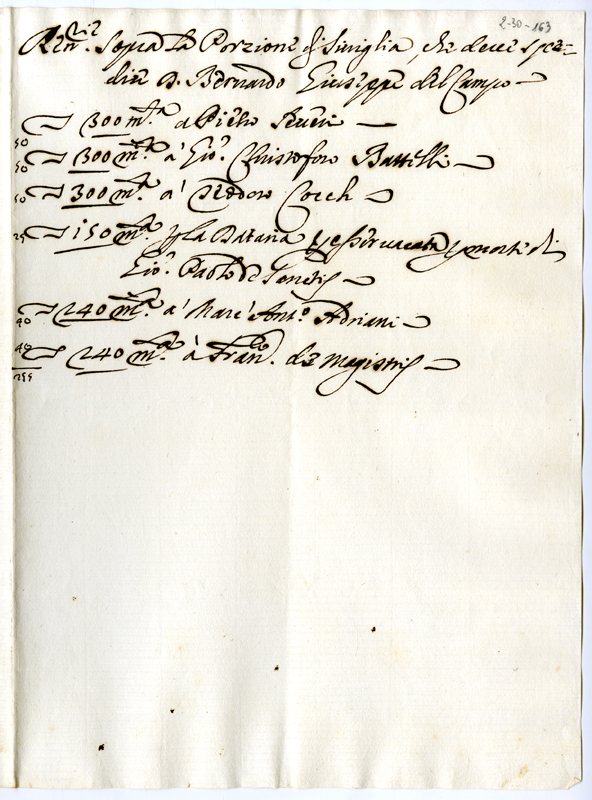 2-30-163
Pen.ni Sopra la Porzione di Siviglia, che deve spe-
dire D. Bernardo Giuseppe del Campo
50 300 m.ta a Pietro
50 300 m.ta a' Gio. Christoforo Battelli
50 300 m.ta a' Cech
25 150 m.ta la Dataria morte di
Gio. Paolo de
40 240 m.ta a' Marc' Ant.o Adriani
40 240 m.ta à Fran.co de Magistris
255